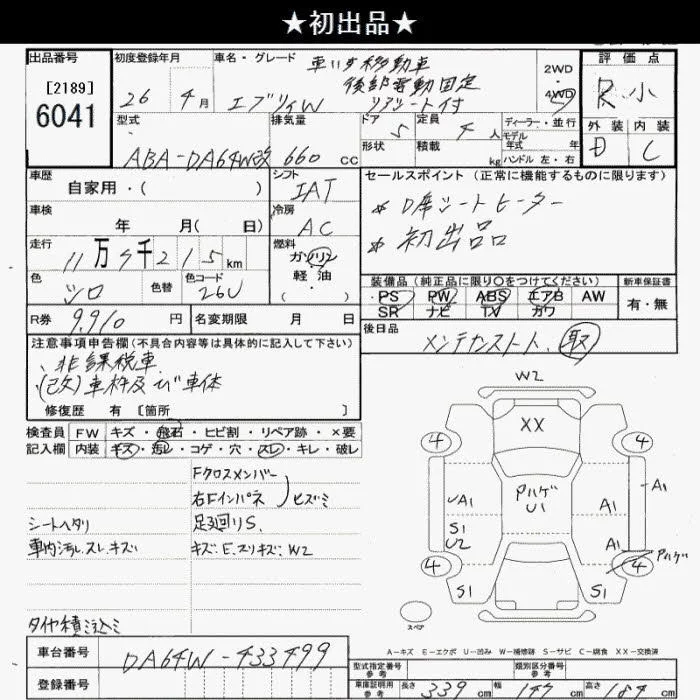 ★初出品★
出品番号
[2189]
6041
初度登録年月
26 年 4月
車名・グレード
車いす移動車
後部電動固定
エブリィW リアシート付
2WD
4WD
評価点
R 小
外装 内装
D C
型式
ABA-DA64W改
排気量
660 cc
ドア 5
形状
定員 4 人
積載 kg
ディーラー・並行
モデル
年式 年
ハンドル 左・右
車歴
自家用・( )
シフト
IAT
セールスポイント (正常に機能するものに限ります)
* D席シートヒーター
* 初出品
車検
年 月( 日)
冷房
AC
走行
11万 千215km
燃料
ガソリン
軽油
( )
色
シロ
色替
色コード
26U
装備品 (純正品に限り○をつけてください)
PS PW ABS エアB AW
SR ナビ TV カワ
新車保証書
有・無
R券 9,910 円
名変期限 月 日
後日品
メンテナンスノート 取
注意事項申告欄 (不具合内容等は具体的に記入して下さい)
、非課税車
、(改)車枠及び車体
修復歴 有 [箇所 ]
検査員
記入欄
FW キズ・飛石・ヒビ割・リペア跡・×要
内装 キズ・汚レ・コゲ・穴・スレ・キレ・破レ
Fクロスメンバー
右Fインパネ ヒズミ
シートヘタリ
足廻りS.
車内汚レスレキズ
キズ.E.スリキズ:W2
タイヤ積ミ込ミ
W2
XX
4 4
Pハゲ
U1
A1
A1
A1
S1
U2
A1
4 4
Pハゲ
S1 S1
スペア
A-キズ E-エクボ U-凹み W-補修跡 S-サビ C-腐食 XX-交換済
車台番号
DA64W-433499
登録番号
型式指定番号
参考
類別区分番号
参考
車庫証明用
参考
長さ 339 cm 幅 147 cm 高さ 187 cm